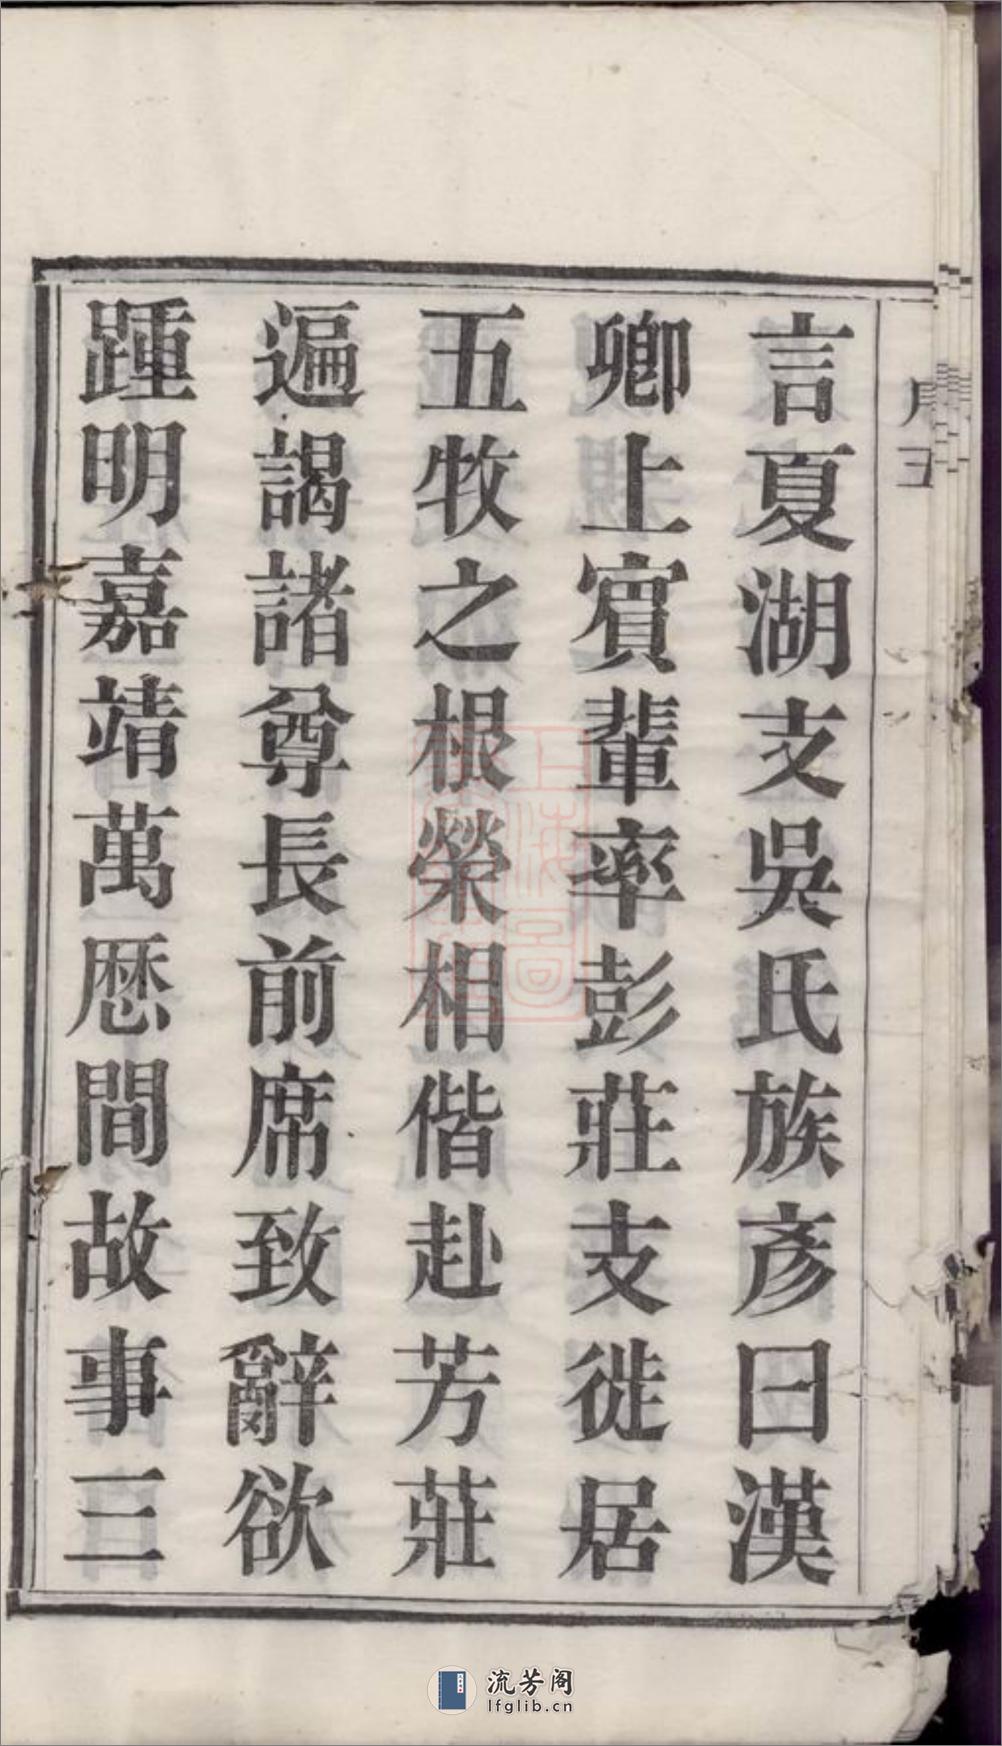 言夏湖支吳氏族彥曰漢
卿上賓輩率彭莊支徙居
五牧之根榮相偕赴芳莊
遍謁諸尊長前席致辭欲
踵明嘉靖萬厯間故事三
流芳阁
lfglib.cn